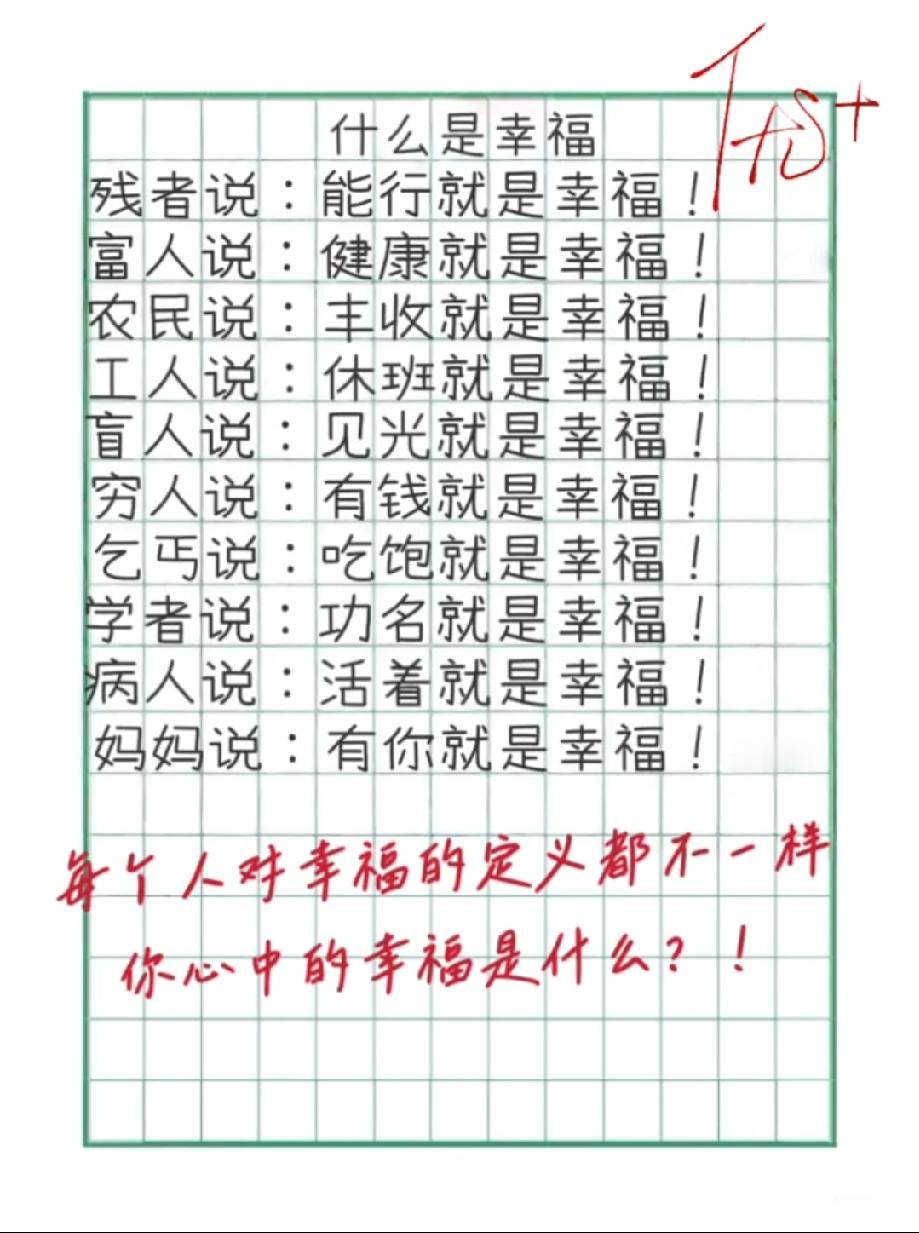 什么是幸福
残者说：能行就是幸福！
富人说：健康就是幸福！
农民说：丰收就是幸福！
工人说：休班就是幸福！
盲人说：见光就是幸福！
穷人说：有钱就是幸福！
乞丐说：吃饱就是幸福！
学者说：功名就是幸福！
病人说：活着就是幸福！
妈妈说：有你就是幸福！
每个人对幸福的定义都不一样
你心中的幸福是什么？！